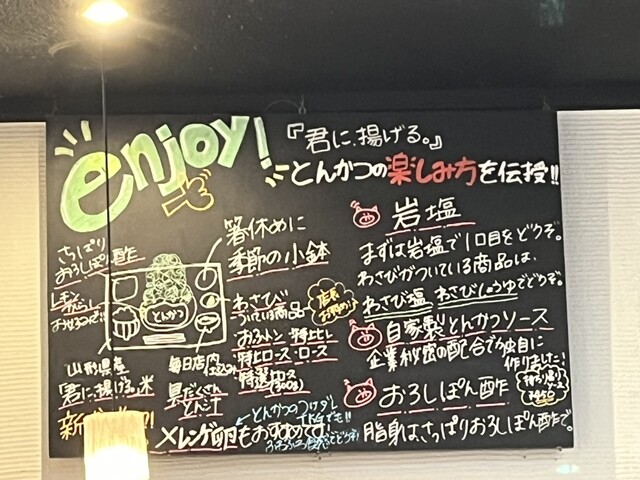 enjoy!
『君に、揚げる。』
とんかつの楽しみ方を伝授!!
さっぱり
おろしぽん酢
とんかつ
山形県産
君に、揚げる。米
毎日店内
具だくさん
とん汁
箸休めに
季節の小鉢
わさび
ついている商品
店長
お勧め♪
おふトン 特上ヒレ
特上ロース・ロース
特選ロース
(300g)
メレンゲ卵もおすすめです!
とんかつのつけダレ
TKGでも!!
岩塩
まずは岩塩で1口目をどうぞ。
わさびがついている商品は、
わさび塩 わさびしょうゆでどうぞ。
自家製とんかつソース
企業秘密の配合で独自に
作りました!
おろしぽん酢
持ち帰り
ソース
¥450
脂身は、さっぱりおろしぽん酢で。